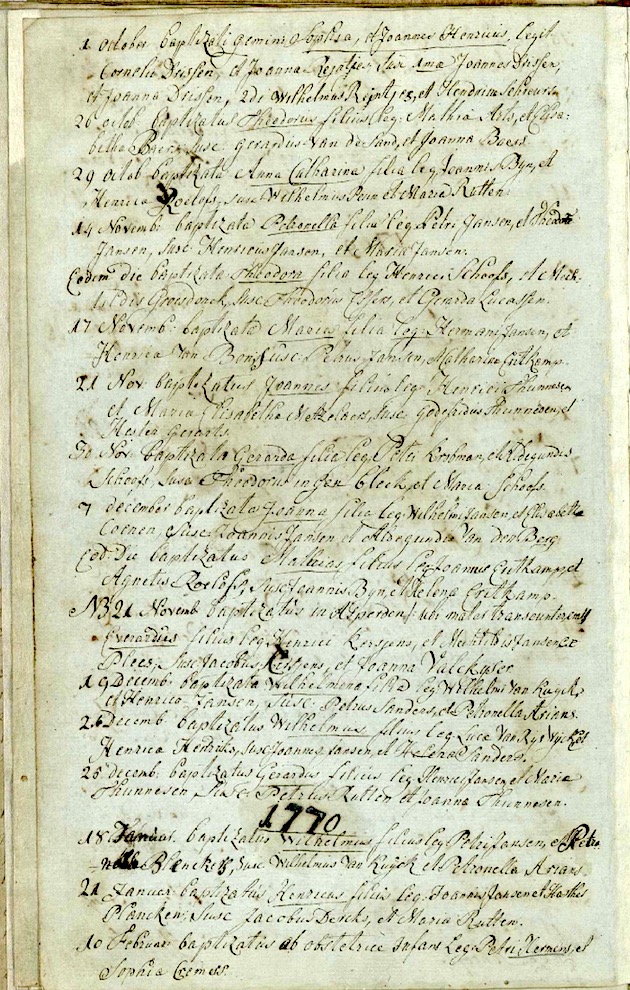 1 October baptizati gemini et Joannes Henricus, legit.
Cornelii Drissen, et Joanna Reintjes, Susc 1mae Joannes Drissen,
et Joanna Drissen, 2di Wilhelmus Reintjes, et Hendrina
26 octob baptizatus Theodorus filius leg: Mathia Arts, et Elisa=
betha Baers Susc Gerardus van de Sand, et Joanna Baers.
29 Octob baptizata Anna Catharina filia leg Joannis Byn, et
Henrica Roelofs, Susc Wilhelmus et Maria Rutten.
14 Novemb: baptizata Petronella filia leg Petri Jansen, et
Jansen, Susc: Henricus Jansen, et Maria Jansen.
Eodem die baptizata Theodora filia leg Henrici Schoofs, et Mech=
tildis Groesdonck, Susc Theodorus et Gerarda Lucassen.
17 Novemb: baptizata Maria filia leg: Hermani Jansen, et
Henrica Van Susc: Petrus Jansen, Catharina Eutkamp.
21 Nov baptizatus Joannes filius leg: Henrici Thunnesen
et Maria Elisabetha Susc: Godefridus Thunnesen, et
Hester Gerarts.
30 Nov. baptizata Gerarda filia leg Petri et Aldegundis
Schoofs, Susc Theodorus in gen bleek, et Maria Schoofs.
7 december baptizata Joanna filia leg Wilhelmi Jansen, et Elisabetha
Coenen, Susc Joannis Jansen, et Aldegundis Van den Berg
Eod: die baptizatus Mathias filius leg Joannis Eutkamp, et
Agnetis Roelofs, Susc Joannis Byn, et Helena Eutkamp.
NB 21 Novemb baptizatus in Asperden, ubi mater transeunter
Everardus filius leg: Henrici Kersjens, et Mechtildis Jansen ex
Plees, Susc Jacobus Kersjens, et Joanna Valckyser
19 Decemb: baptizata Wilhelmina filia leg Wilhelmi Van Kuyck,
et Henrica Jansen, Susc: Petrus Sanders, et Petronella Arians.
26 Decemb: baptizatus Wilhelmus filius leg Luca Van Ryswyck, et
Henrica Hendricks, Susc Joannis Jansen, et Helena Sanders.
28 decemb: baptizatus Gerardus filius leg Henrici Jansen, et Maria
Thunnesen, Susc: Petrus Rutten et Joanna Thunnesen.
1770
18 Januar. baptizatus Wilhelmus filius leg Petri Jansen, et Petro
=nella Blanckers, Susc Wilhelmus Van Kuyck et Petronella Arians.
21 Januar baptizatus Henricus filius leg: Joannis Jansen et
Plancken, Susc Jacobus et Maria Rutten.
10 Februar baptizatus ab obstetrice infans leg: Petri Hermens, et
Sophia Cremers.